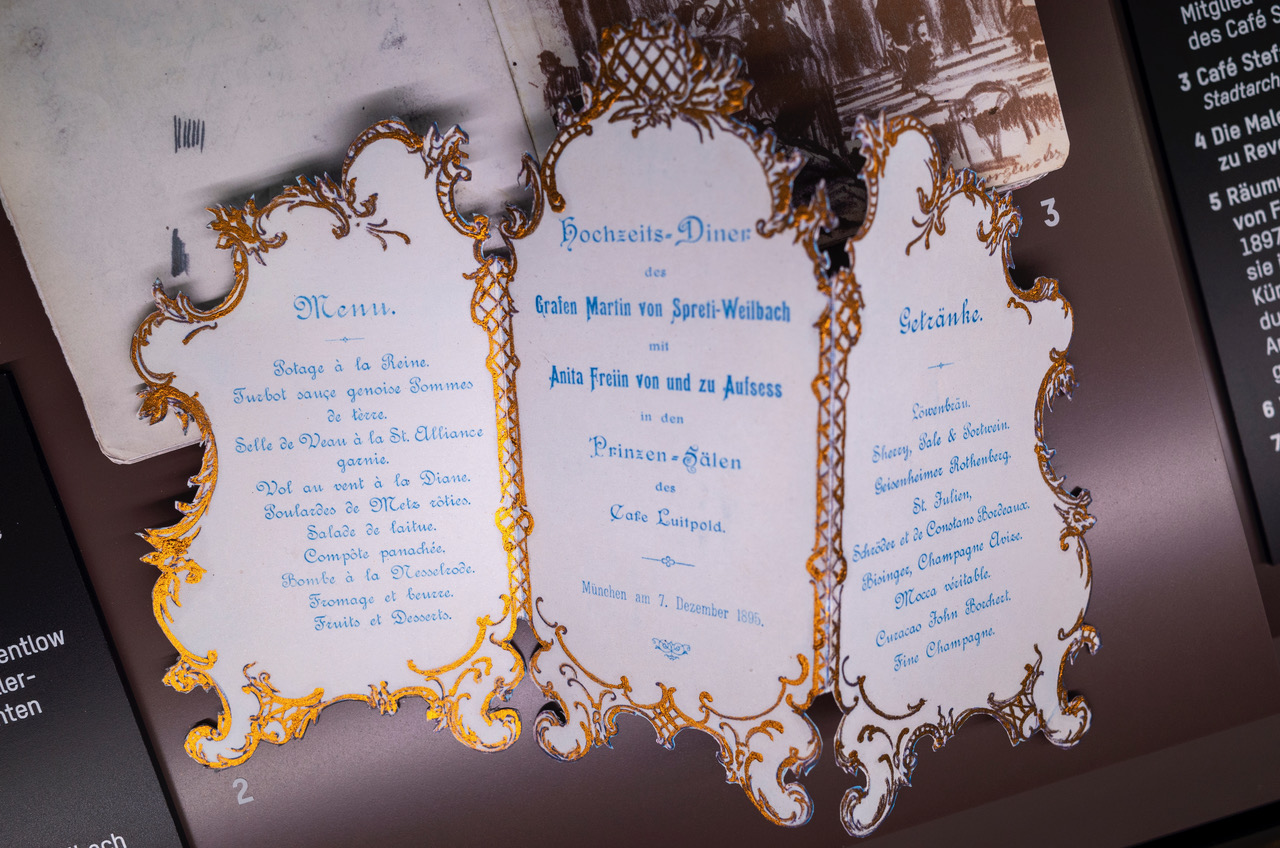 Menu.
Potage à la Reine.
Turbot sauçe genoise Pommes
de tèrre.
Selle de Veau à la St. Alliance
garnie.
Vol au vent à la Diane.
Poulardes de Metz rôties.
Salade de laitue.
Compôte panachée.
Bombe à la Nesselrode.
Fromage et beurre.
Fruits et Desserts.
Hochzeits-Diner
des
Grafen Martin von Spreti-Weilbach
mit
Anita Freiin von und zu Aufsess
in den
Prinzen-Sälen
des
Cafe Luitpold.
München am 7. Dezember 1895.
Getränke.
Löwenbräu.
Sherry, Pale & Portwein.
Geisenheimer Rothenberg.
St. Julien,
Schröder et de Constans Bordeaux.
Bisinger, Champagne Avize.
Mocca véritable.
Curacao John Borchert.
Fine Champagne.
2
3
Mitglied
des Café S
3 Café Stef
Stadtarch
4 Die Male
zu Reve
5 Räumu
von F
1897
sie i
Kün
du
A
g
6
7
entlow
ler-
nten